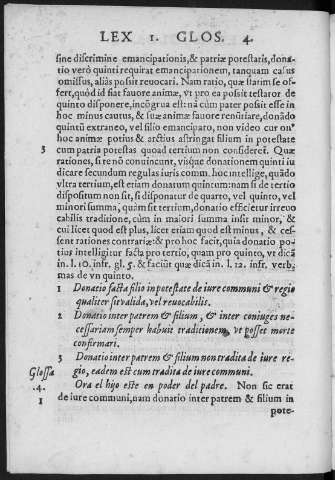 LEX 1. GLOS. 4.
sine discrimine emancipationis, & patriæ potestatis, dona
tio verò quinti requirat emancipationem, tanquam casus
omissus, aliàs possit reuocari. Nam ratio, quæ statim se of-
fert, quòd id fiat fauore animæ, vt pro ea possit testator de
quinto disponere, incõgrua est: nã cùm pater possit esse in
hoc minus cautus, & suæ animæ fauore renũtiare, donãdo
quintũ extraneo, vel filio emancipato, non video cur on
hoc animæ potius & arctius astringat filium in potestate
3 cum patria potestas quoad tertium non consideret. Quæ
rationes, si te nõ conuincunt, visque donationem quinti iu
dicare secundum regulas iuris comm. hoc intellige, quãdo
vltra tertium, est etiam donatum quintum: nam si de tertio
dispositum non sit, si disponatur de quarto, vel quinto, vel
minori summa, quàm sit tertium, donatio efficietur irreuo
cabilis traditione, cùm in maiori summa insit minor, &
cui licet quod est plus, licet etiam quod est minus, & ces-
sent rationes contrariæ: & pro hoc facit, quia donatio po-
tius intelligitur facta pro tertio, quam pro quinto, vt dicã
in. l. 10. infr. gl. 5. & faciũt quæ dicã in. l. 12. infr. verb.
mas de vn quinto.
1 Donatio facta filio in potestate de iure communi & regio
qualiter sit valida, vel reuocabilis.
2 Donatio inter patrem & filium, & inter coniuges ne-
cessariam semper habuit traditionem, vt posset morte
confirmari.
3 Donatio inter patrem & filium non tradita de iure re-
Glossa gio, eadem est cum tradita de iure communi.
.4. Ora el hijo este en poder del padre. Non sic erat
1 de iure communi, nam donatio inter patrem & filium in
pote-